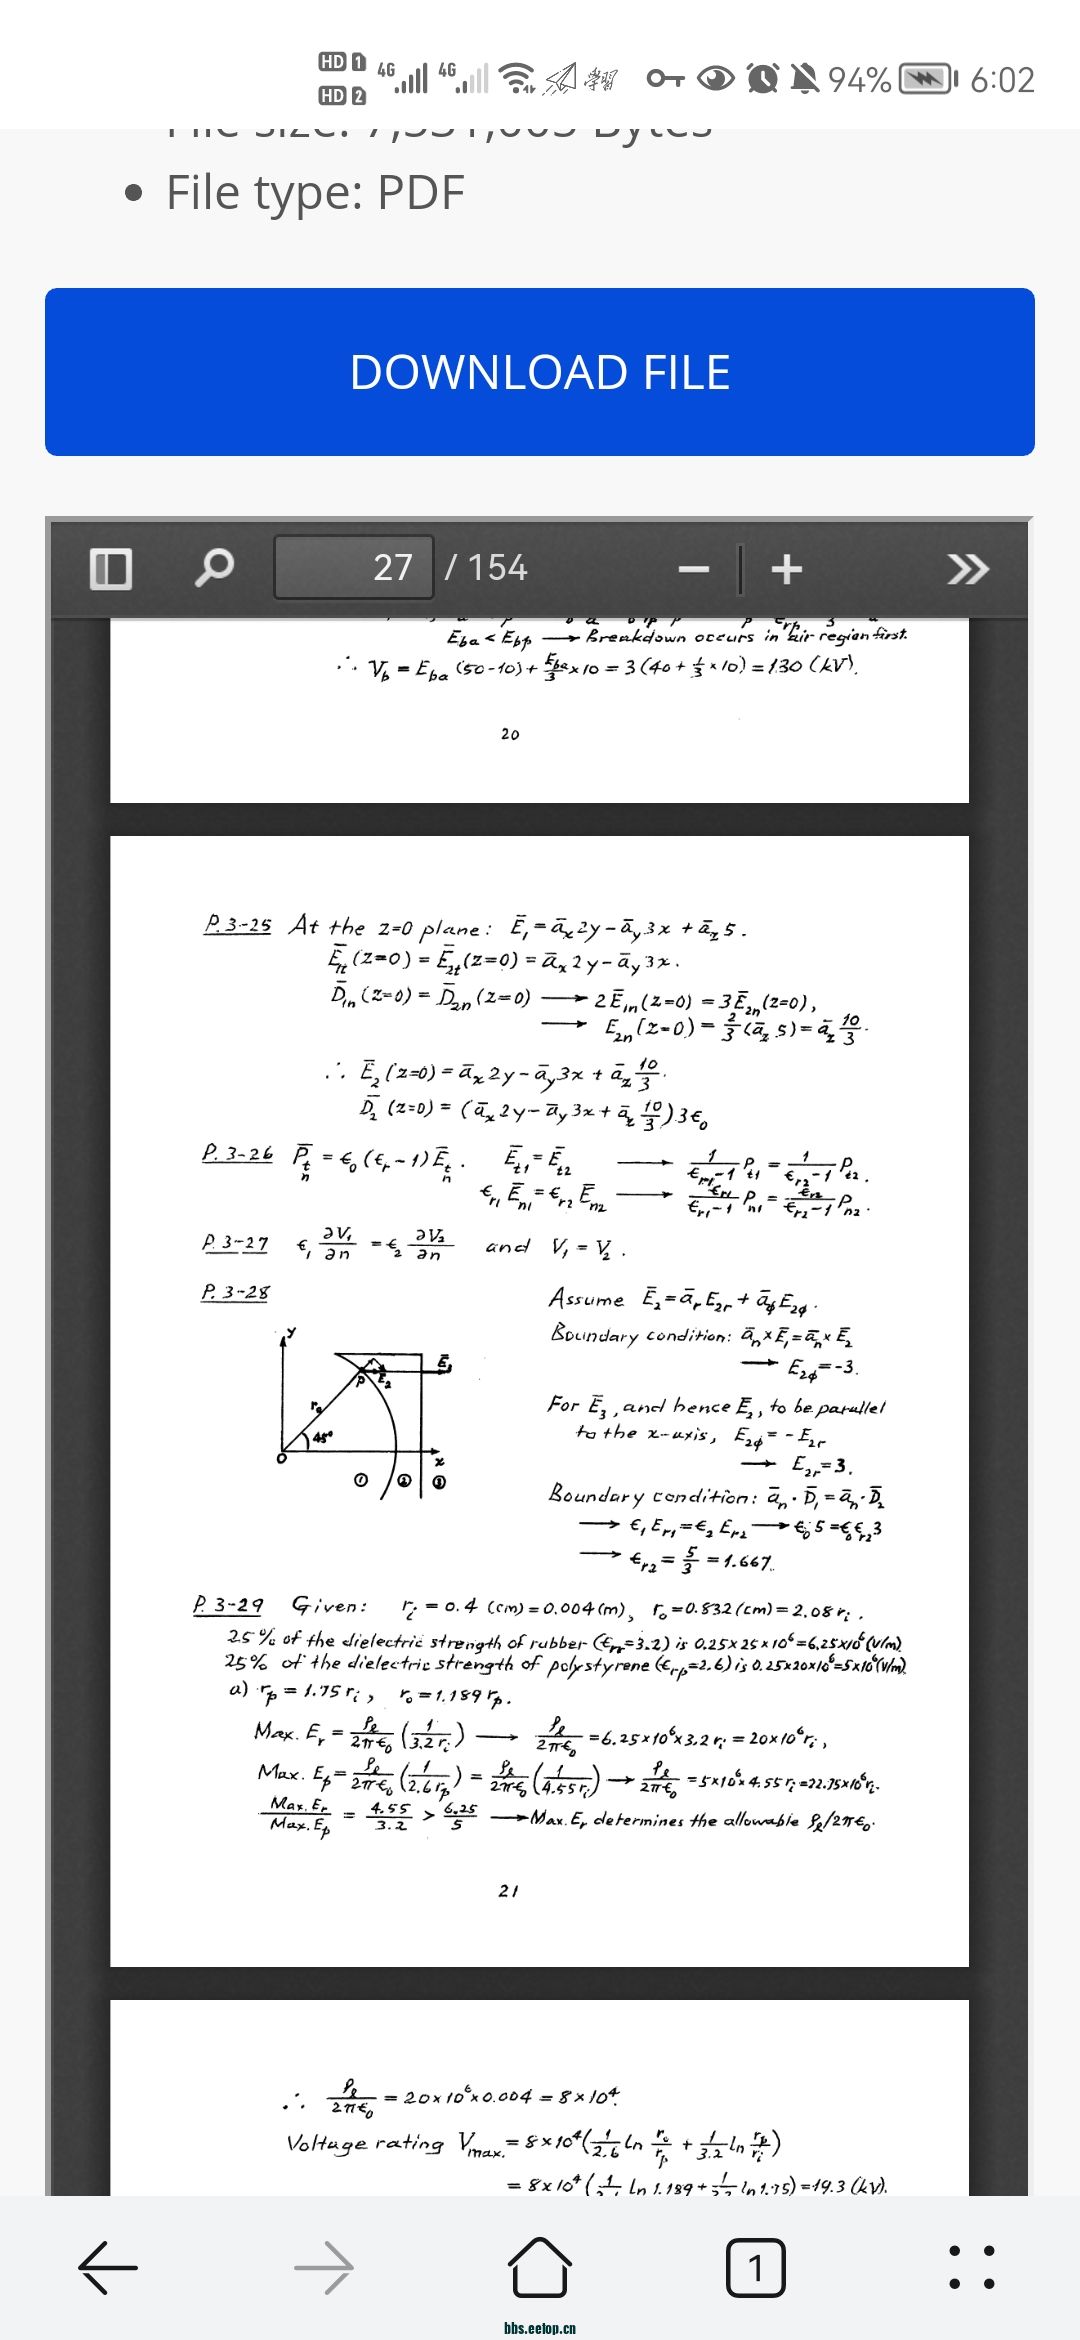 HD 1 4G 4G 學習 94% 6:02
HD 2
File size: 7,551,005 Bytes
• File type: PDF
DOWNLOAD FILE
27 / 154
Eba < Ebp → Breakdown occurs in air region first.
∴ Vb = Eba (50-10) + Eba/3 × 10 = 3 (40 + 1/3 × 10) = 130 (kV).
20
P.3-25 At the z=0 plane: Ē₁ = āx 2y - āy 3x + āz 5.
Ē1t (z=0) = Ē2t (z=0) = āx 2y - āy 3x.
D̄1n (z=0) = D̄2n (z=0) → 2Ē1n (z=0) = 3Ē2n (z=0),
→ Ē2n (z=0) = 2/3 (āz 5) = āz 10/3.
∴ Ē₂ (z=0) = āx 2y - āy 3x + āz 10/3.
D̄₂ (z=0) = (āx 2y - āy 3x + āz 10/3) 3ϵ₀
P.3-26 P̄t/n = ϵ₀ (ϵr - 1) Ēt/n. Ēt1 = Ēt2 → 1/(ϵr1 - 1) Pt1 = 1/(ϵr2 - 1) Pt2.
ϵr1 Ēn1 = ϵr2 Ēn2 → ϵr1/(ϵr1 - 1) Pn1 = ϵr2/(ϵr2 - 1) Pn2.
P.3-27 ϵ₁ ∂V₁/∂n = ϵ₂ ∂V₂/∂n and V₁ = V₂.
P.3-28
Assume Ē₂ = ār E2r + āϕ E2ϕ.
Boundary condition: ān × Ē₁ = ān × Ē₂
→ E2ϕ = -3.
For Ē₃, and hence Ē₂, to be parallel
to the x-axis, E2ϕ = - E2r
→ E2r = 3.
Boundary condition: ān · D̄₁ = ān · D̄₂
→ ϵ₁ Er1 = ϵ₂ Er2 → ϵ₀ 5 = ϵ₀ ϵr2 3
→ ϵr2 = 5/3 = 1.667.
y
Ē₃
P Ē₂
r₀
45°
O x
① ② ③
P.3-29 Given: ri = 0.4 (cm) = 0.004 (m), r₀ = 0.832 (cm) = 2.08 ri.
25% of the dielectric strength of rubber (ϵrr = 3.2) is 0.25×25×10⁶ = 6.25×10⁶ (V/m).
25% of the dielectric strength of polystyrene (ϵrp = 2.6) is 0.25×20×10⁶ = 5×10⁶ (V/m).
a) rp = 1.75 ri, r₀ = 1.189 rp.
Max. Er = ρℓ/2πϵ₀ (1/3.2ri) → ρℓ/2πϵ₀ = 6.25×10⁶×3.2 ri = 20×10⁶ ri,
Max. Ep = ρℓ/2πϵ₀ (1/2.6rp) = ρℓ/2πϵ₀ (1/4.55ri) → ρℓ/2πϵ₀ = 5×10⁶×4.55 ri = 22.75×10⁶ ri.
Max. Er/Max. Ep = 4.55/3.2 > 6.25/5 → Max. Er determines the allowable ρℓ/2πϵ₀.
21
∴ ρℓ/2πϵ₀ = 20×10⁶×0.004 = 8×10⁴.
Voltage rating Vmax. = 8×10⁴ (1/2.6 ln r₀/rp + 1/3.2 ln rp/ri)
= 8×10⁴ ( ln 1.189 + ln 1.75) = 19.3 (kV).
1
bbs.eetop.cn